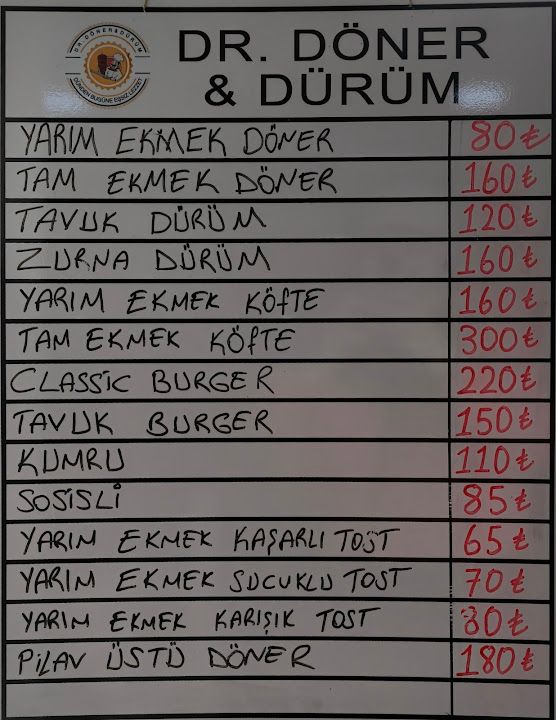 DR. DÖNER & DÜRÜM
DÜNDEN BUGÜNE EŞSİZ LEZZET
DR. DÖNER
& DÜRÜM
YARIM EKMEK DÖNER 80₺
TAM EKMEK DÖNER 160₺
TAVUK DÜRÜM 120₺
ZURNA DÜRÜM 160₺
YARIM EKMEK KÖfTE 160₺
TAM EKMEK KÖfTE 300₺
CLASSIC BURGER 220₺
TAVUK BURGER 150₺
KUMRU 110₺
SOSİSLİ 85₺
YARIM EKMEK KAŞARLI TOST 65₺
YARIM EKMEK SUCUKLU TOST 70₺
YARIM EKMEK KARIŞIK TOST 80₺
PİLAV ÜSTÜ DÖNER 180₺